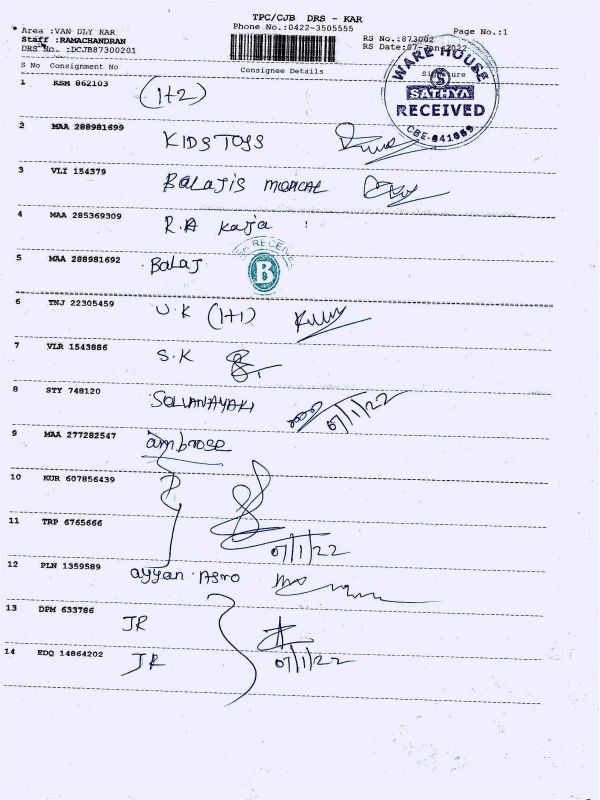 TPC/CJB DRS - KAR
Area :VAN DLY KAR
Phone No.:0422-3505555
Page No.:1
Staff :RAMACHANDRAN
RS No.:873002
DRS No. :DCJB87300201
RS Date:07-Jan-2022
S No Consignment No
Consignee Details
Signature
WARE HOUSE
S
SATHYA
RECEIVED
CBE-641
1 KSM 862103 (1+2)
2 MAA 288981699 KIDS TOYS
3 VLI 154379 BALAJIS MEDICAL
4 MAA 285369309 R.A Kaja
5 MAA 288981692 Balaj
RECEIVE
B
6 TNJ 22305459 U.K (1+1)
7 VLR 1543886 S.K
8 STY 748120 SELVANAYAKI 07/1/22
9 MAA 277282547 ambrose
10 KUR 607856439
11 TRP 6765666 07/1/22
12 PLN 1359589 ayyan Astro
13 DPM 633786 JR
14 EDQ 14864202 JR 07/1/22